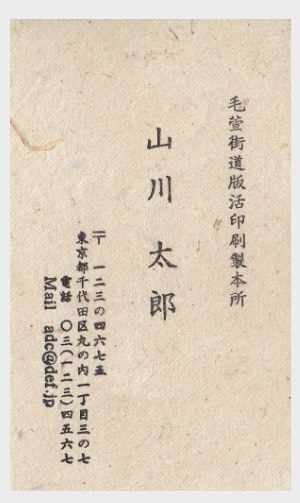 毛萱街道版活印刷製本所
山川太郎
〒 一二三の四六七五
東京都千代田区丸の内一丁目三の七
電話 〇三(一二三)四五六七
Mail adc@def.jp